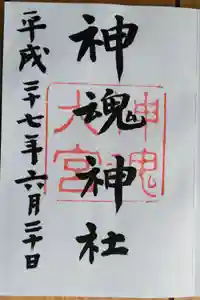 神魂神社
神魂
大宮
平成二十七年六月二十日